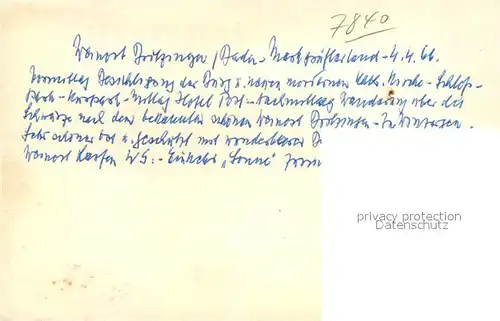 7840
Weinort Britzingen / Baden - Markgräflerland - 4.4.66.
Vormittag Besichtigung der Burg u. neuen modernen kath. Kirche - Schloß-
Park - Kurpark - Mittag Hotel Post - Nachmittag Wanderung über die
Schwärze nach dem bekannten schönen Weinort Britzingen - In
Sehr schöner Ort u. geschützt mit wunderbarer
Weinort Laufen - Einkehr "Sonne"
privacy protection
AnsichtskartenVM